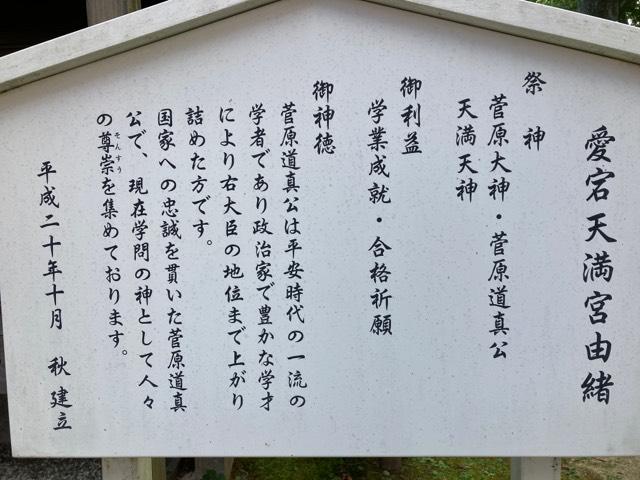 愛宕天満宮由緒
祭神
菅原大神・菅原道真公
天満天神
御利益
学業成就・合格祈願
御神徳
菅原道真公は平安時代の一流の
学者であり政治家で豊かな学才
により右大臣の地位まで上がり
詰めた方です。
国家への忠誠を貫いた菅原道真
公で、現在学問の神として人々
の尊崇を集めております。
そんすう
平成二十年十月 秋建立